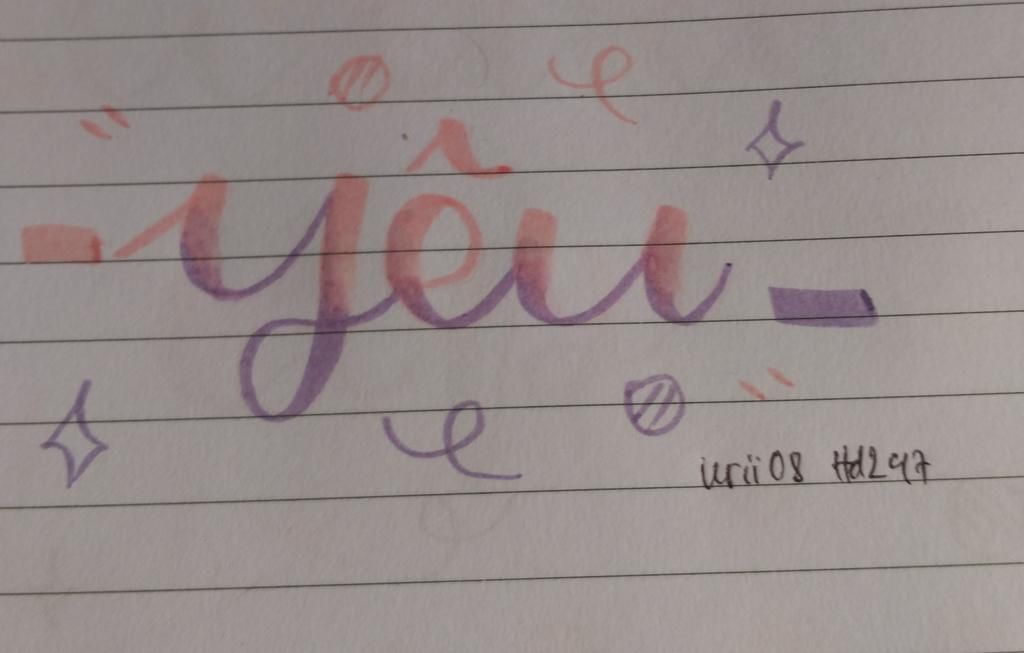 yêu
urii08 Hd297